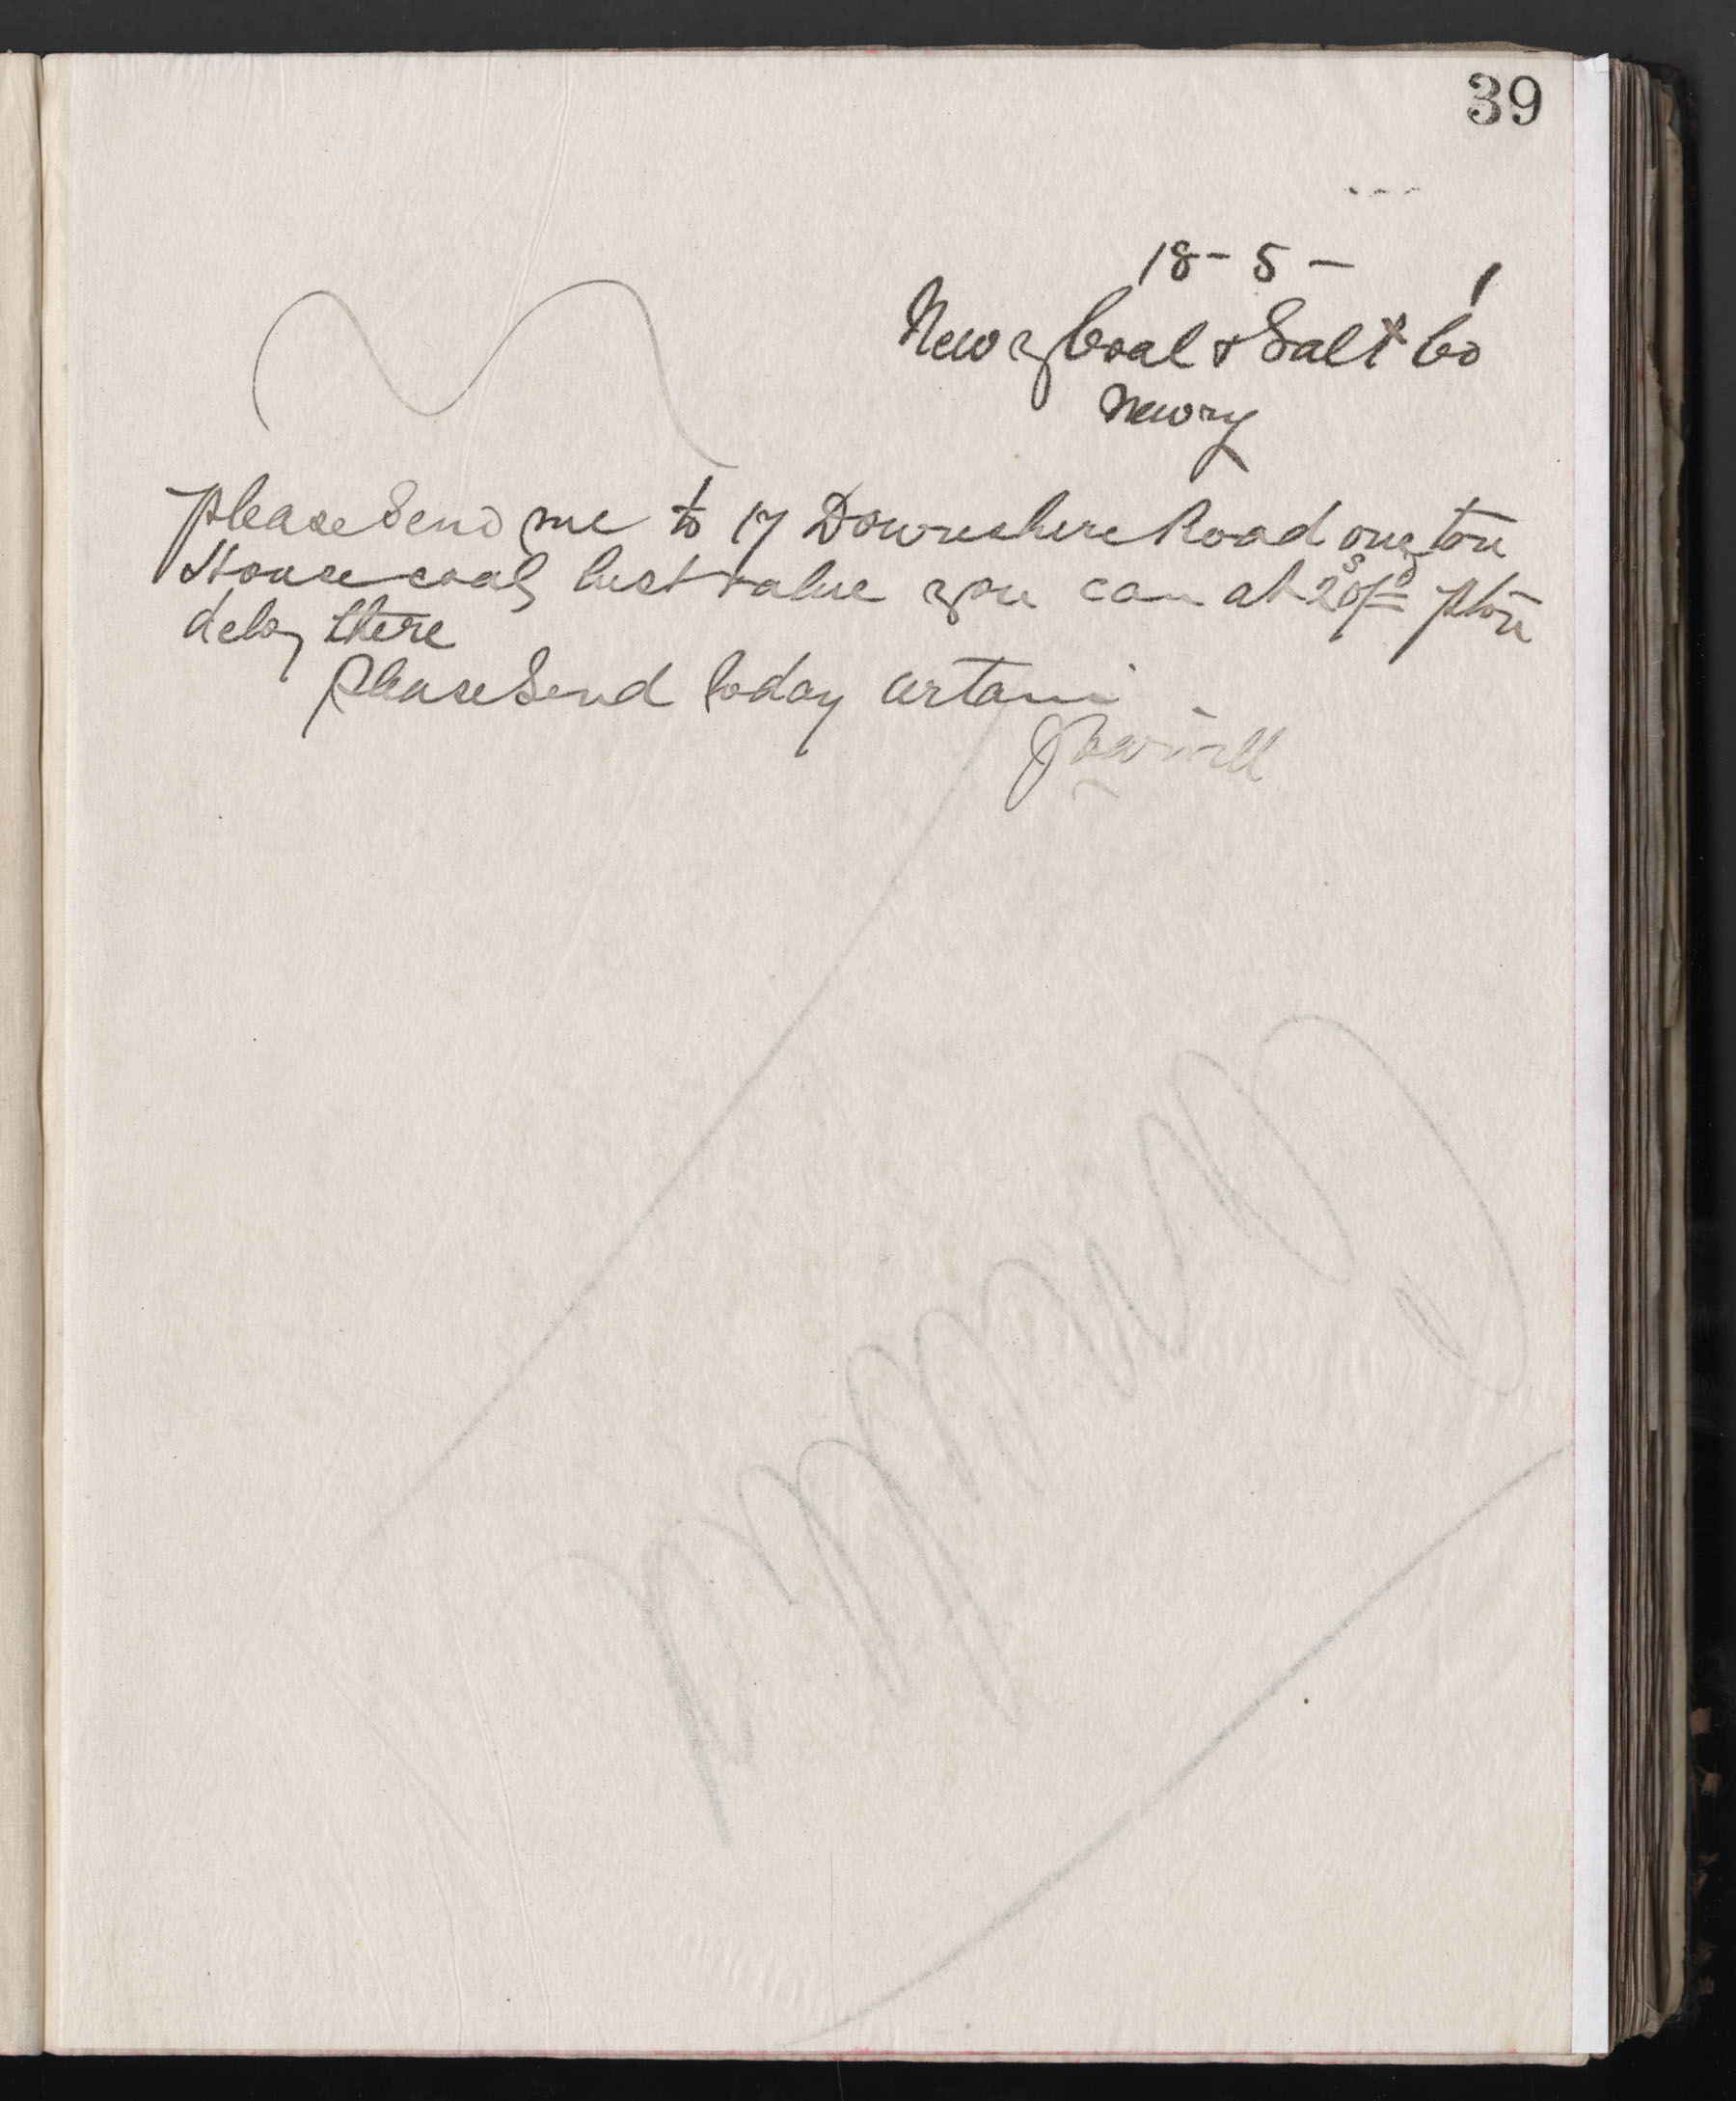 39
18-5- 1
Newry Coal & Salt Co
Newry
Please Send me to 17 Downshire Road one ton
House coal, best value you can at 20/= p ton
dely there
Please Send today certain